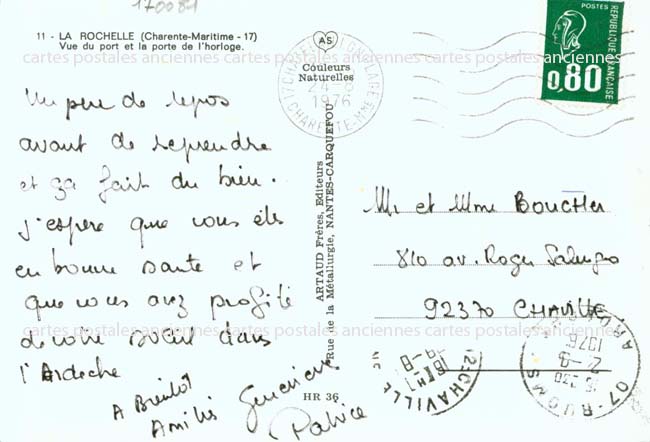 170081
11 - LA ROCHELLE (Charente-Maritime - 17)
Vue du port et la porte de l'horloge.
cartes postales anciennes cartes postales anciennes cartes postales anciennes
Un peu de repos
avant de reprendre
et ça fait du bien.
j'espère que vous êtes
en bonne santé et
que vous avez profité
de votre soleil dans
l'Ardèche
A Bientôt
Amitiés Geneviève
Patrice
AS
Couleurs
Naturelles
1976
CHARENTE-MME
ARTAUD Frères, Editeurs
Rue de la Métallurgie, NANTES-CARQUEFOU
HR 36
POSTES
REPUBLIQUE FRANÇAISE
0,80
Mr et Mme BOUCHER
810 av. Roger Salengro
92370 CHAVILLE
cartes postales anciennes cartes postales anciennes cartes postales anciennes
CHAVILLE
07-RUOMS
1976